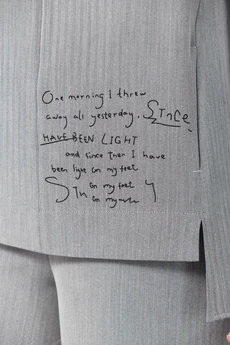 One morning I threw
away all yesterday. Since
HAVE BEEN LIGHT
and since then I have
been light on my feet
on my feet
on my